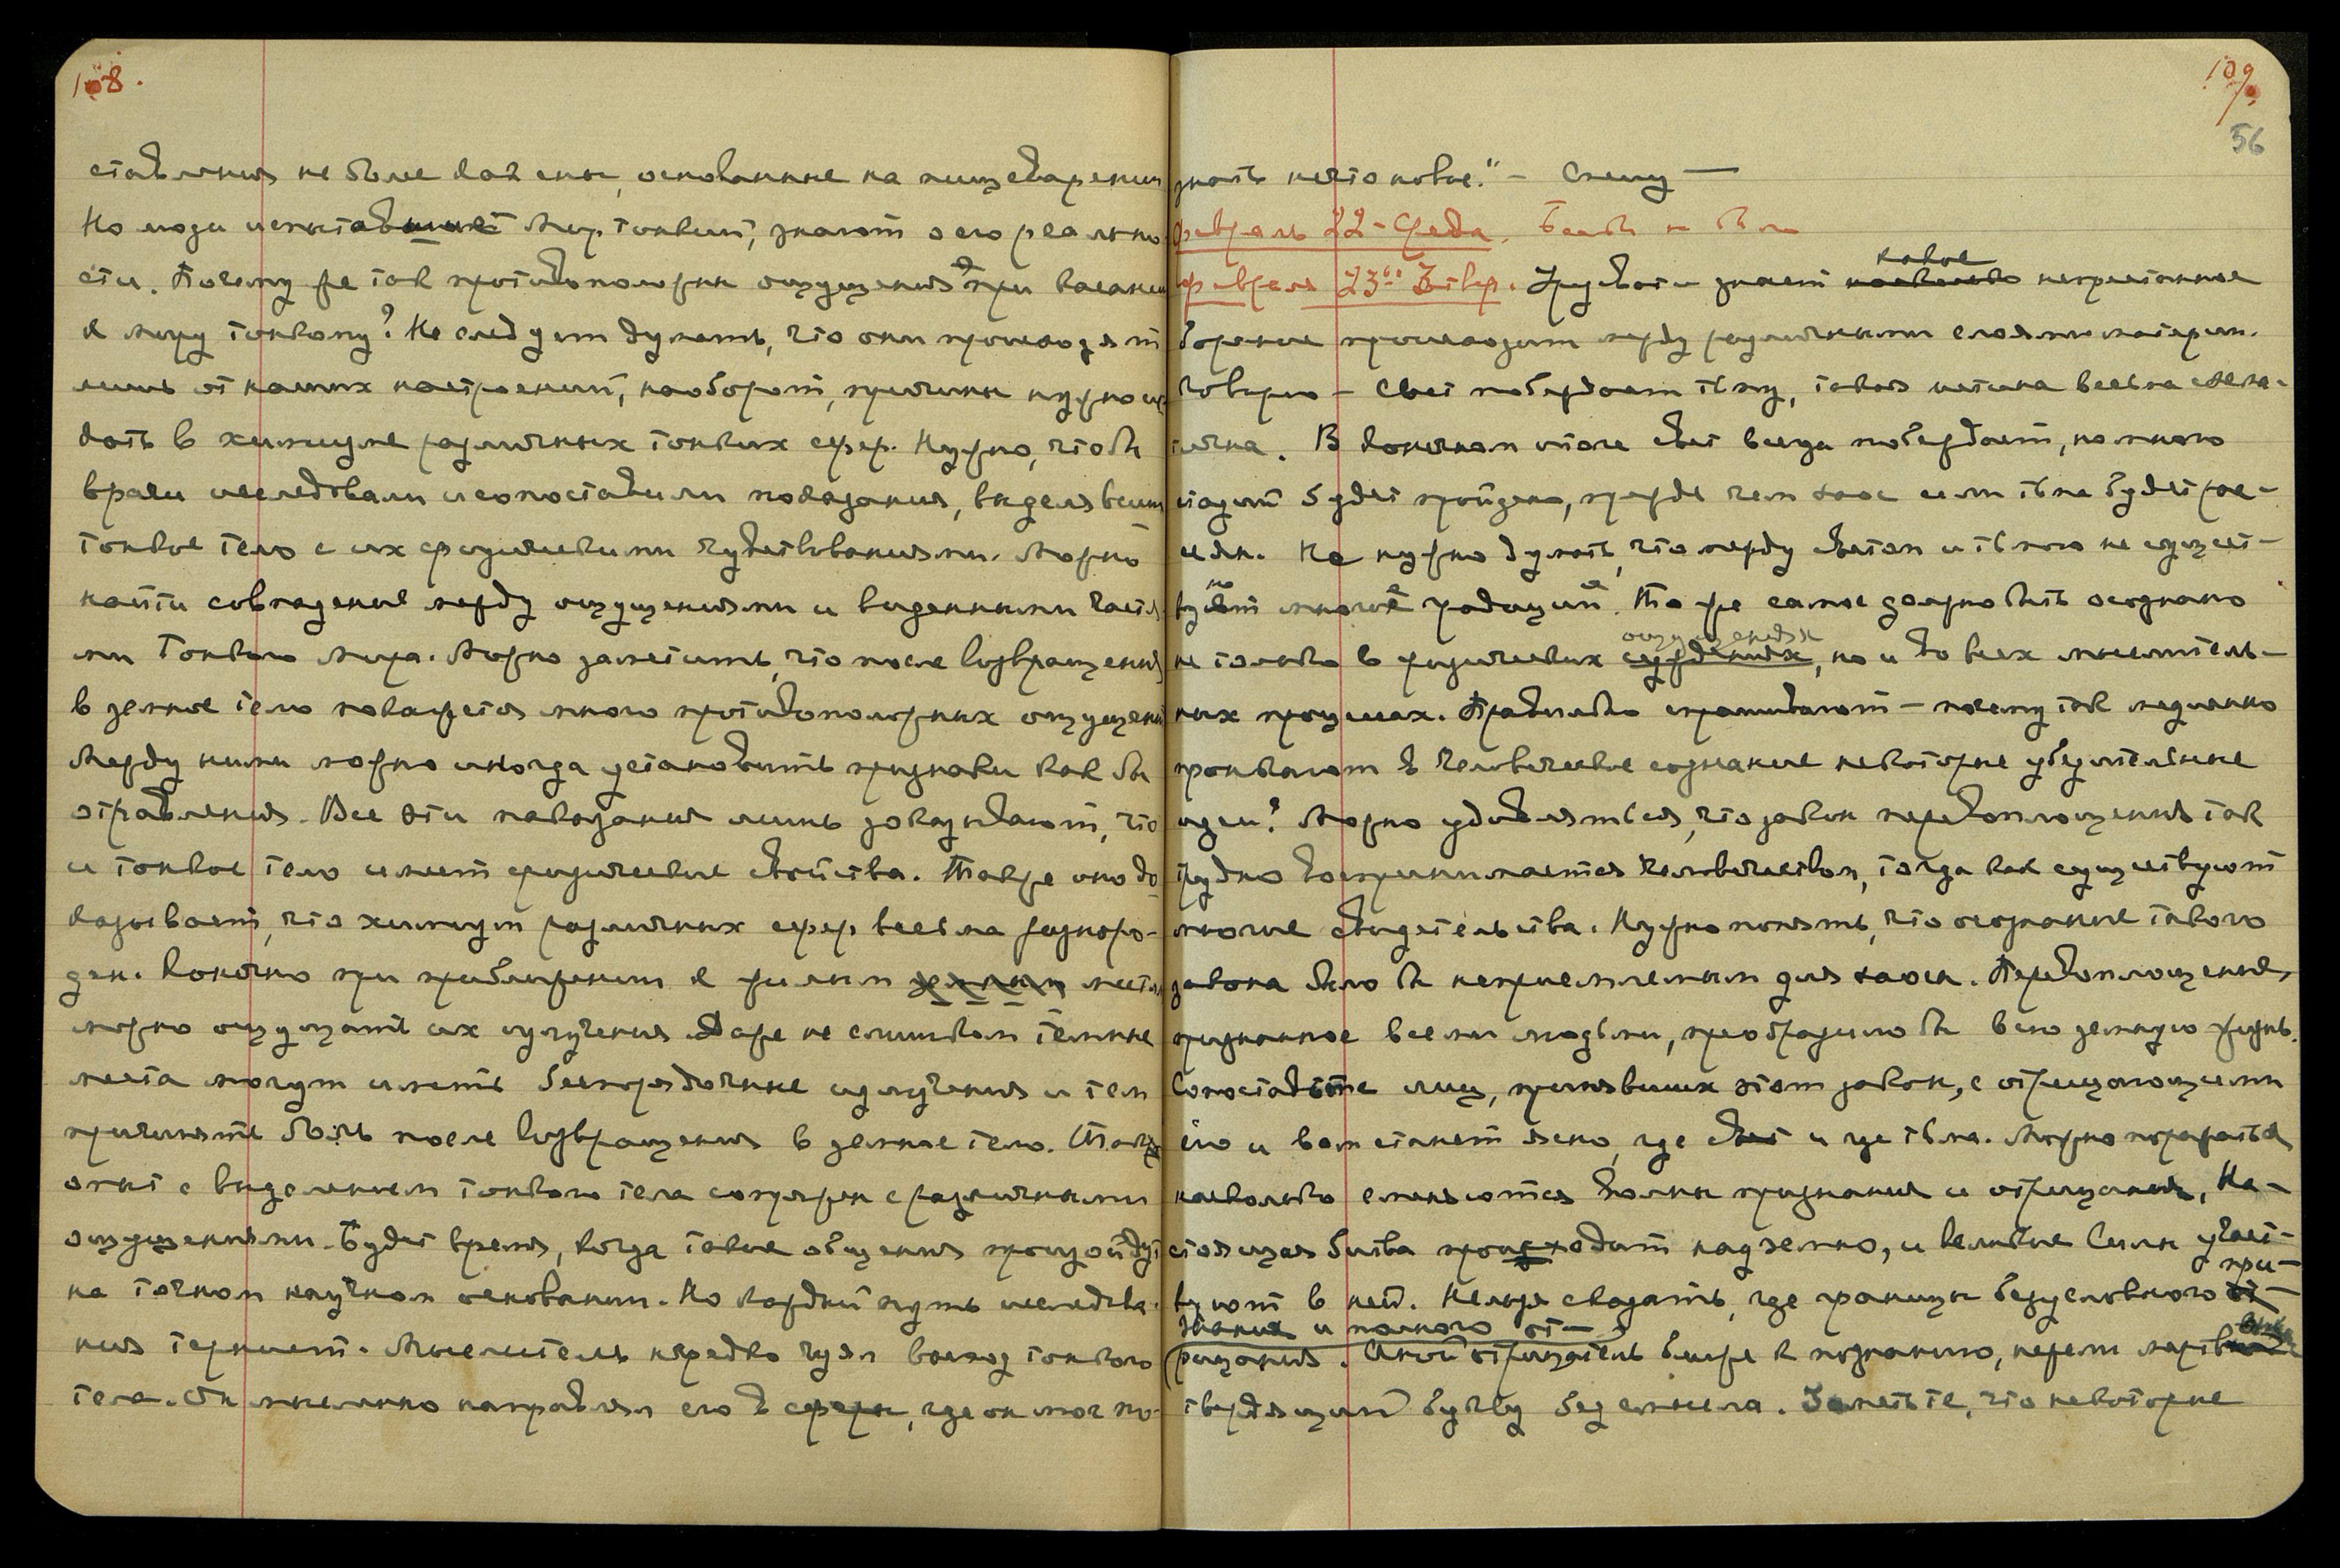 108.
ставления не более как сны, основанные на пищеварении
Но люди испытавшие Мир Тонкий, знают о его реально-
сти. Почему же так противоположны ощущения при касании
к миру тонкому? Не следует думать, что они происходят
лишь от наших настроений, наоборот, причины нужно ис-
кать в химизме различных тонких сфер. Нужно, чтобы
врачи исследовали и сопоставили показания, выделявших
тонкое тело с их физическими чувствованиями. Можно
найти совпадение между ощущениями и виденными частя-
ми Тонкого мира. Можно заметить, что после возвращения
в земное тело покажется много противоположных ощущений
Между ними можно иногда установить признаки как бы
отравления. Все эти показания лишь доказывают, что
и тонкое тело имеет физические свойства. Также оно до-
казывает, что химизм различных сфер весьма разноро-
ден. Конечно при приближении к жилым земным местам
можно ощущать их излучения. Даже не слишком темные
места могут иметь беспорядочные излучения и тем
причинять боль после возвращения в земное тело. Также
опыт с выделением тонкого тела сопряжен с различными
ощущениями. Будет время, когда такие общения произойдут
на точном научном основании. Но каждый путь исследова-
ния тернист. Мыслитель нередко чуял выход тонкого
тела. Он мысленно направлял его в сферы, где он мог по-
109.
56
знать нечто новое." – Спешу —
февраль 22 - Среда. Бесед не было
февраля 23го Четвер. Урусвати знает какое насколько непрестанное
борение происходит между различными слоями материи.
Говорю – Свет побеждает тьму, такая истина весьма относи-
тельна. В конечном итоге свет всегда побеждает, но много
стадий будет пройдено, прежде чем хаос или тьма будет рас-
сеян. Не нужно думать, что между светом и тьмою не сущест-
вует многие градации. То же самое должно быть осознано
не только в физических суждениях ощущениях, но и во всех мыслитель-
ных процессах. Правильно спрашивают – почему так медленно
проникают в человеческое сознание некоторые убедительные
идеи? Можно удивляться, что закон перевоплощения так
трудно воспринимается человечеством, тогда как существуют
многие свидетельства. Нужно понять, что осознание такого
закона было бы неприемлемым для хаоса. Перевоплощение,
признанное всеми людьми, преобразило бы всю земную жизнь.
Сопоставьте лиц, принявших этот закон, с отрицающими
его и вам станет ясно, где свет и где тьма. Можно поражаться
насколько сменяются волны признания и отрицания. На-
стоящая битва происходит надземно, и великие Силы участ-
вуют в ней. Нельзя сказать, где границы безусловного при-
знания и полного от-
рицания. Иной отрицатель ближе к познанию, нежели мертво
твердящий букву без смысла. Заметьте, что некоторые